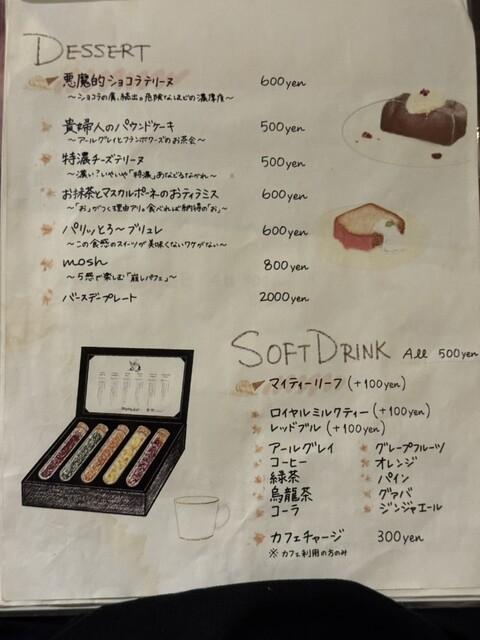 DESSERT
悪魔的ショコラテリーヌ 600yen
～ショコラの虜、続出。危険なほどの濃厚度～
貴婦人のパウンドケーキ 500yen
～アールグレイとフランボワーズのお茶会～
特濃チーズテリーヌ 500yen
～濃い?いやいや「特濃」あなどるなかれ～
お抹茶とマスカルポーネのおティラミス 600yen
～「お」がつく理由アリ。食べれば納得の「お」～
パリッとろ～ブリュレ 600yen
～この食感のスイーツが美味くないワケがない～
mosh 800yen
～5感で楽しむ「崩しパフェ」～
バースデープレート 2000yen
SOFT DRINK All 500yen
マイティーリーフ (+100yen)
ロイヤルミルクティー (+100yen)
レッドブル (+100yen)
アールグレイ
コーヒー
緑茶
烏龍茶
コーラ
グレープフルーツ
オレンジ
パイン
グァバ
ジンジャエール
カフェチャージ 300yen
※カフェ利用の方のみ